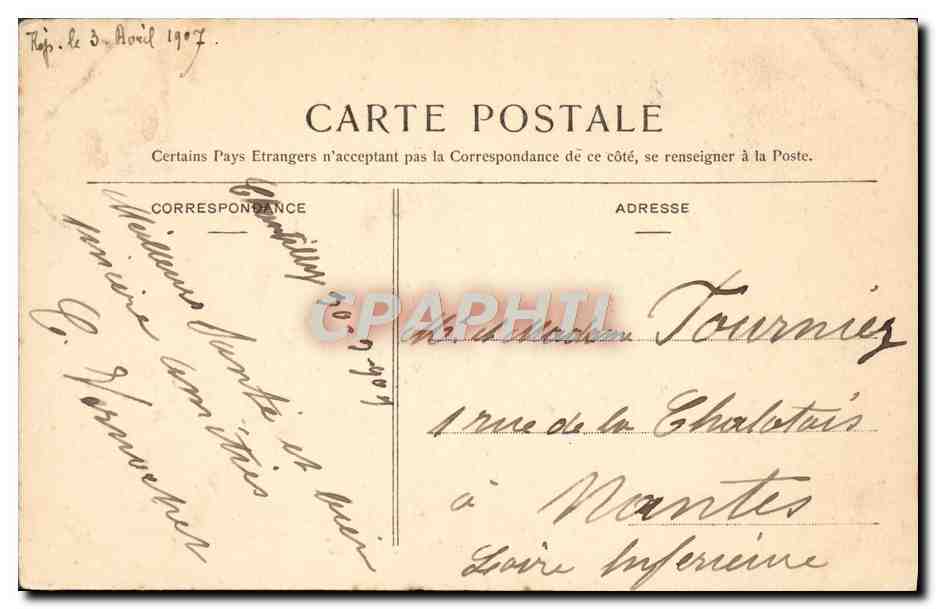 Rép. le 3 Avril 1907.
CARTE POSTALE
Certains Pays Etrangers n'acceptant pas la Correspondance de ce côté, se renseigner à la Poste.
CORRESPONDANCE
Chantilly 30-3-1907
Meilleure Santé et bien
sincère amitiés
C.
ADRESSE
Mr et Madame Tournier
1 rue de la Chalotais
à Nantes
Loire Inferieure
CPAPHIL